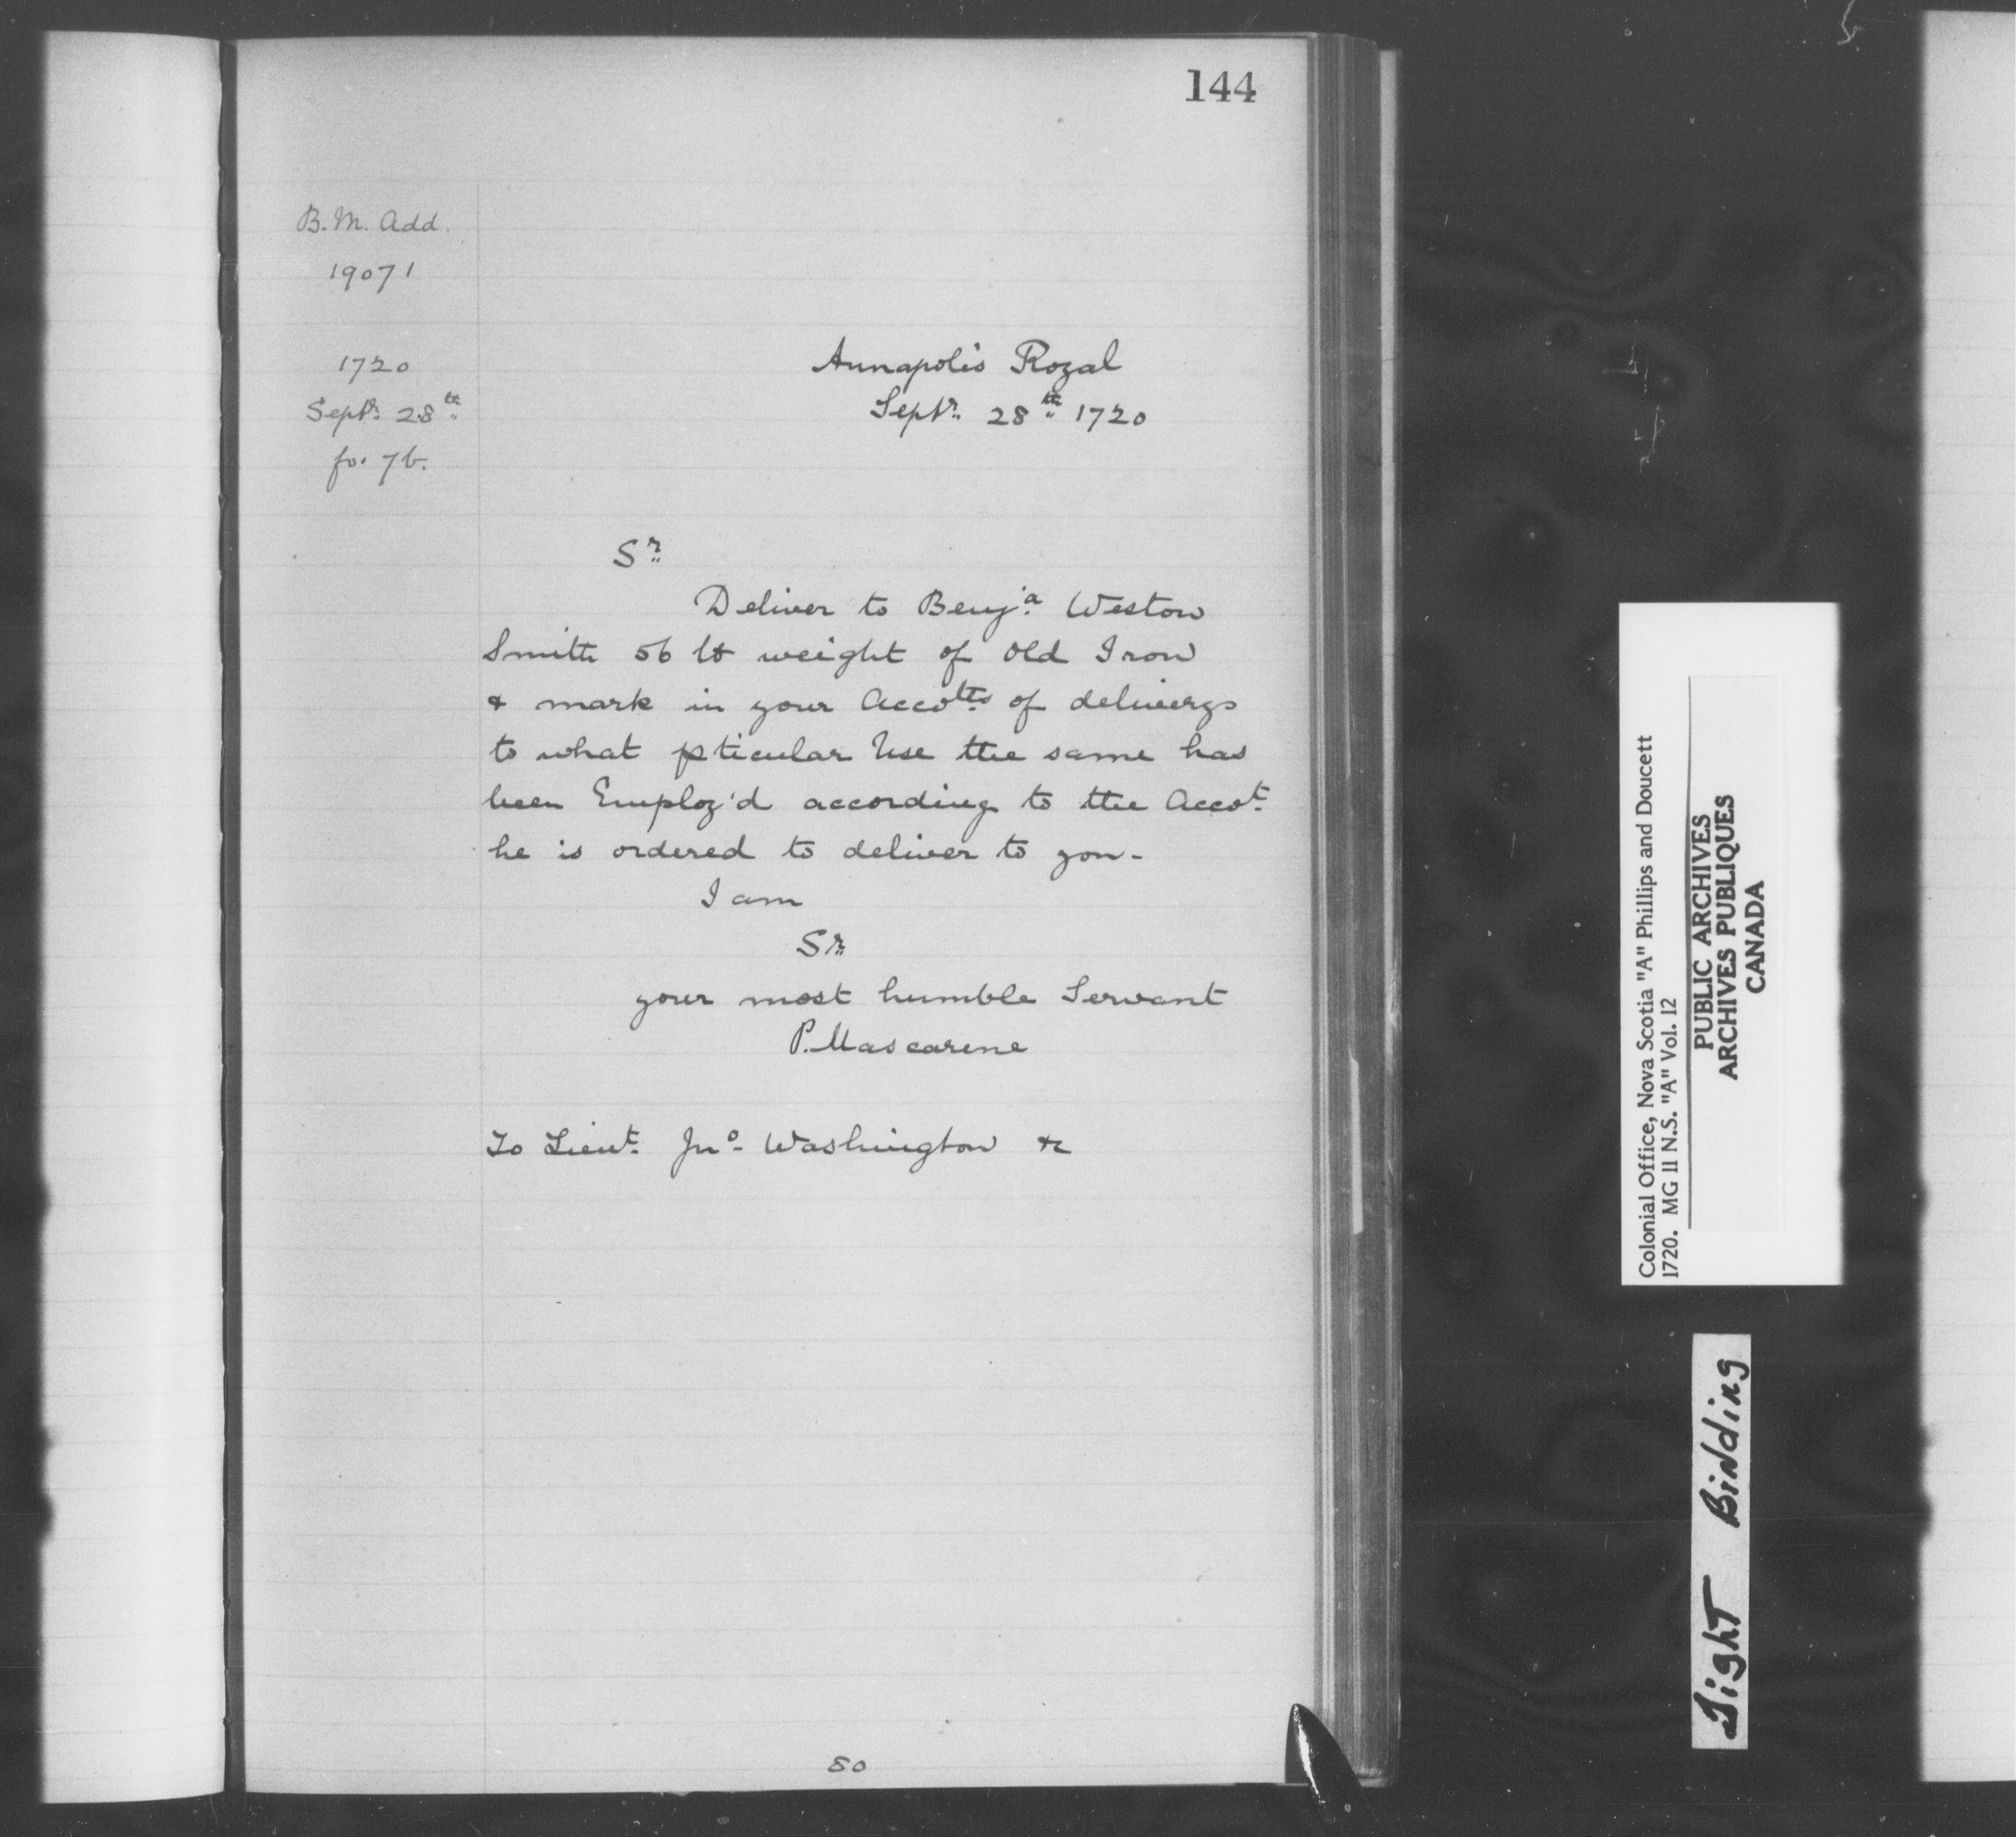 144
B. M. Add.
19071
1720
Septr. 28th
fo. 7b.
Annapolis Royal
Septr. 28th 1720
Sr.
Deliver to Benja. Weston
Smith 56 lb weight of Old Iron
& mark in your Accotts of deliverys
to what pticular Use the same has
been Employ'd according to the Accot.
he is ordered to deliver to you-
I am
Sr.
your most humble Servant
P. Mascarene
To Lieut. Jno. Washington &c
80
Colonial Office, Nova Scotia "A" Phillips and Doucett
1720. MG 11 N.S. "A" Vol. 12
PUBLIC ARCHIVES
ARCHIVES PUBLIQUES
CANADA
Tight Binding